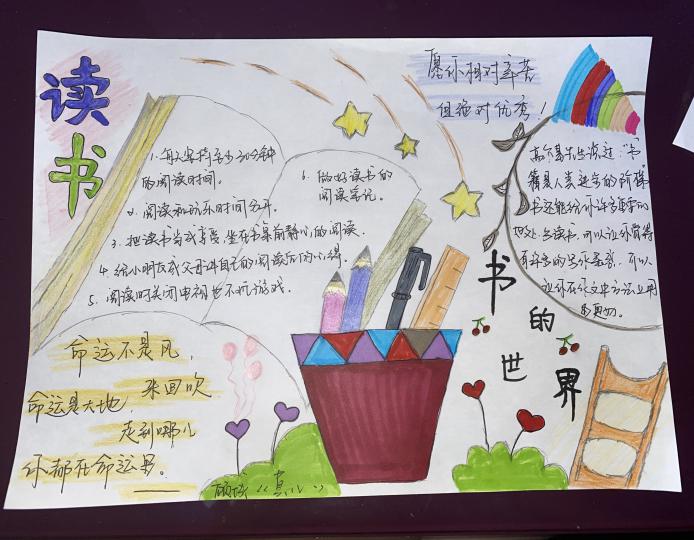 读书
愿你相对辛苦
但绝对优秀！
1. 每天坚持至少30分钟
的阅读时间。
2. 阅读和娱乐时间分开。
3. 把读书当成享受，坐在书桌前静心的阅读.
4. 给小朋友或父母讲自己的阅读后的心得.
5. 阅读时关闭电视也不玩游戏.
6. 做好读书的
阅读笔记。
高尔基先生说过："书
籍是人类进步的阶梯
书还能给你许多重要的
好处，多读书，可以让你觉得
有许多的写作灵感，可以
让你在作文
书的世界
命运不是风，
来回吹
命运是大地，
走到哪儿
你都在命运里。
顾城